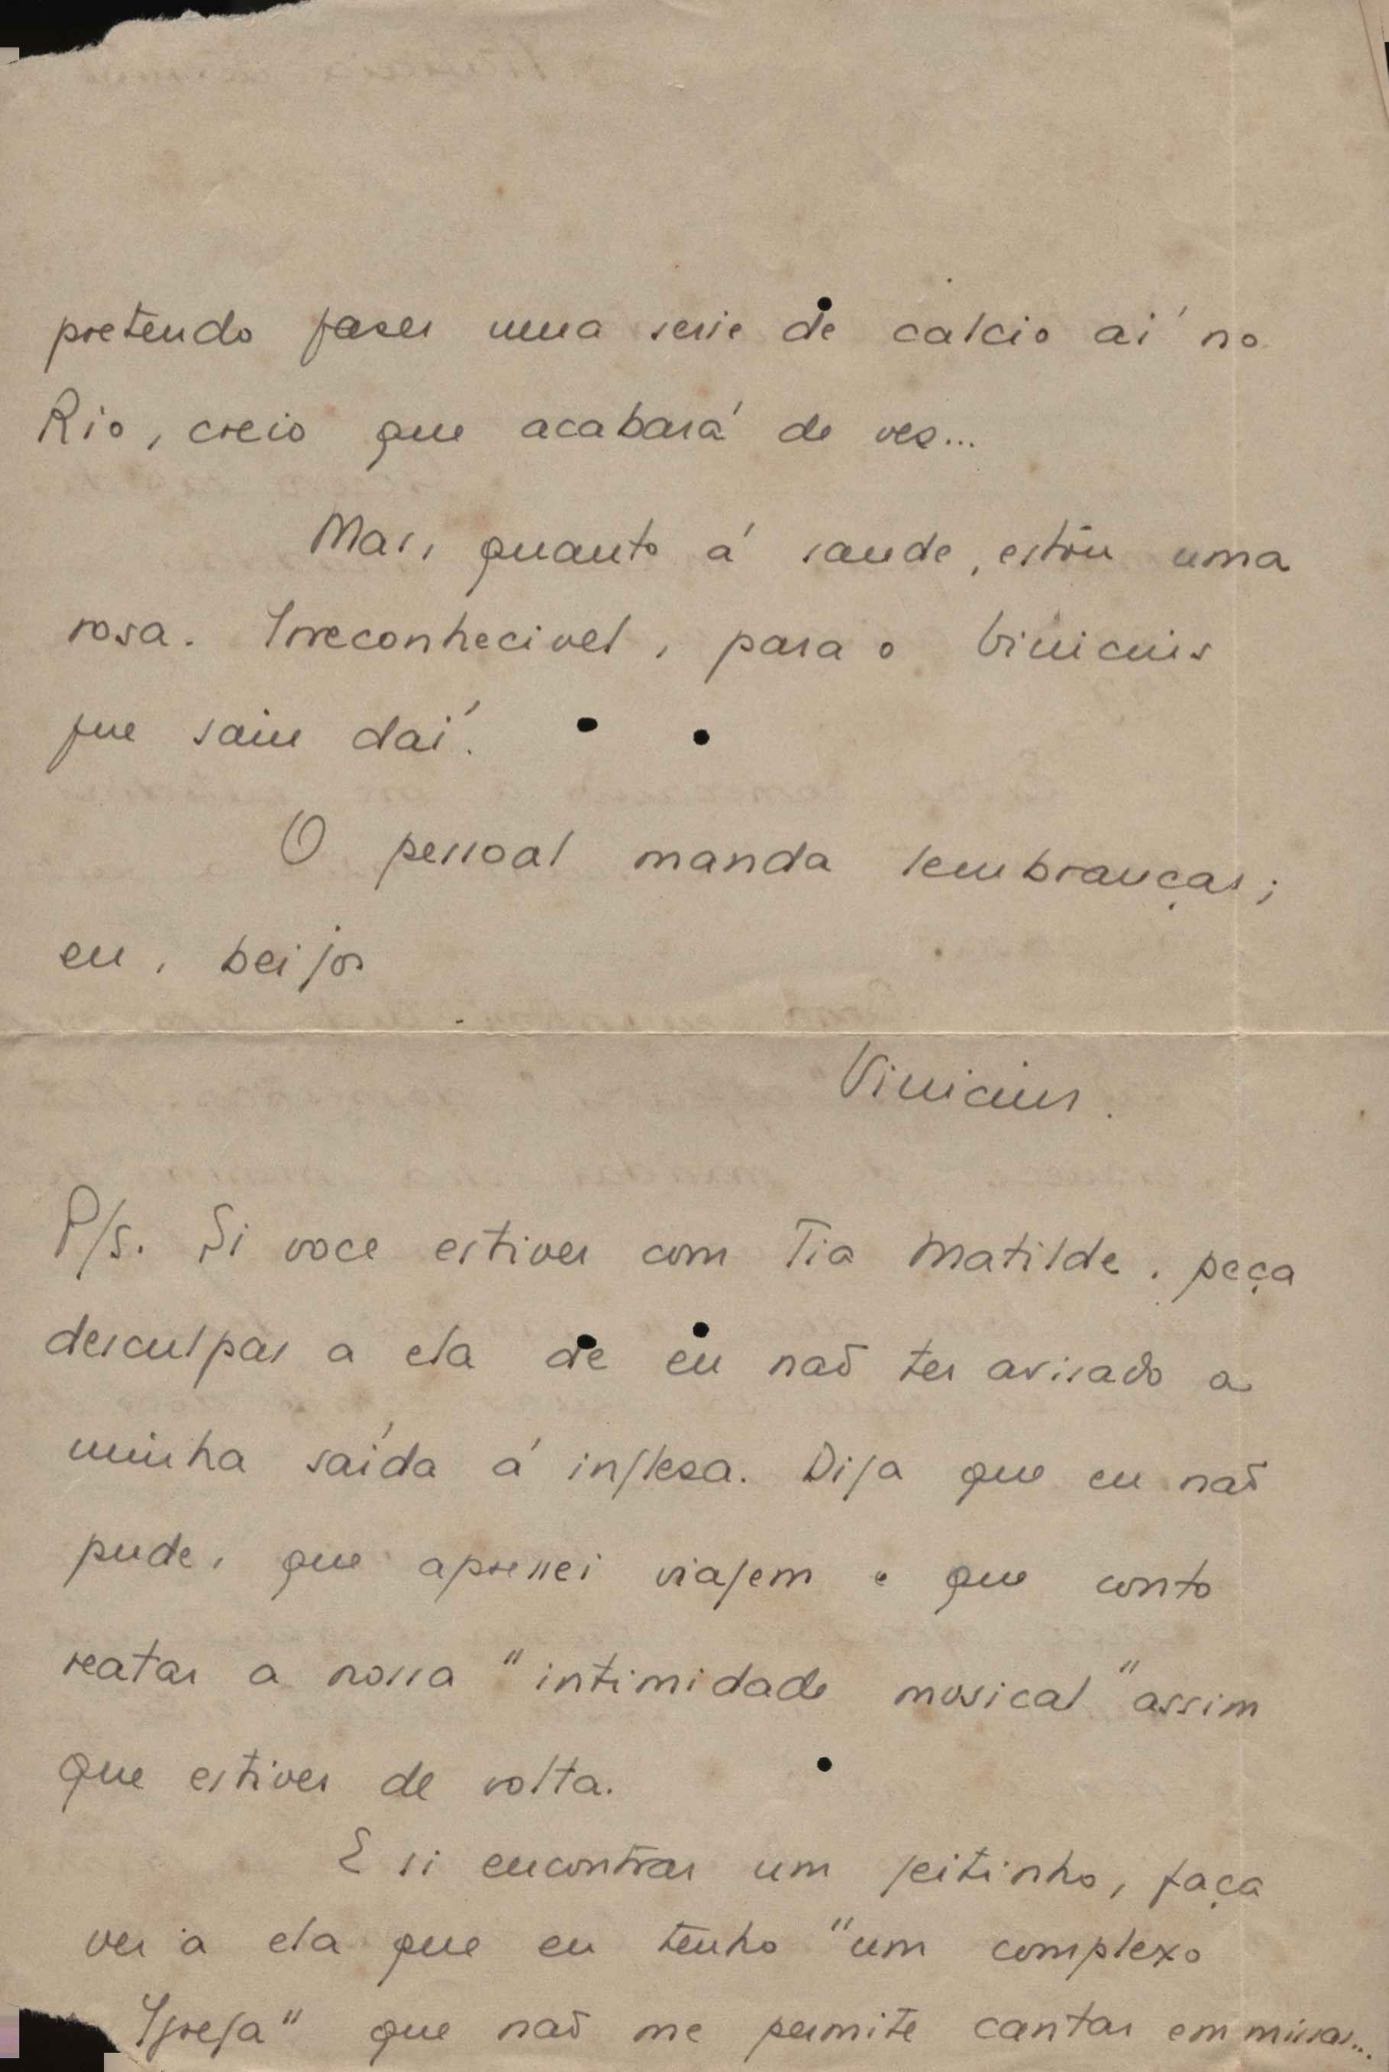 pretendo fazer uma serie de calcio aí no
Rio, creio que acabará de vez...
Mas, quanto á saude, estou uma
rosa. Irreconhecivel, para o Vinicius
que saiu daí.
O pessoal manda lembranças;
eu, beijos
Vinicius.
P/s. Si voce estiver com Tia Matilde, peça
desculpas a ela de eu naõ ter avisado a
minha saída á inglesa. Diga que eu naõ
pude, que apressei viagem e que conto
reatar a nossa "intimidade musical" assim
que estiver de volta.
E si encontrar um jeitinho, faça
ver a ela que eu tenho "um complexo
Igreja" que naõ me permite cantar em missas...